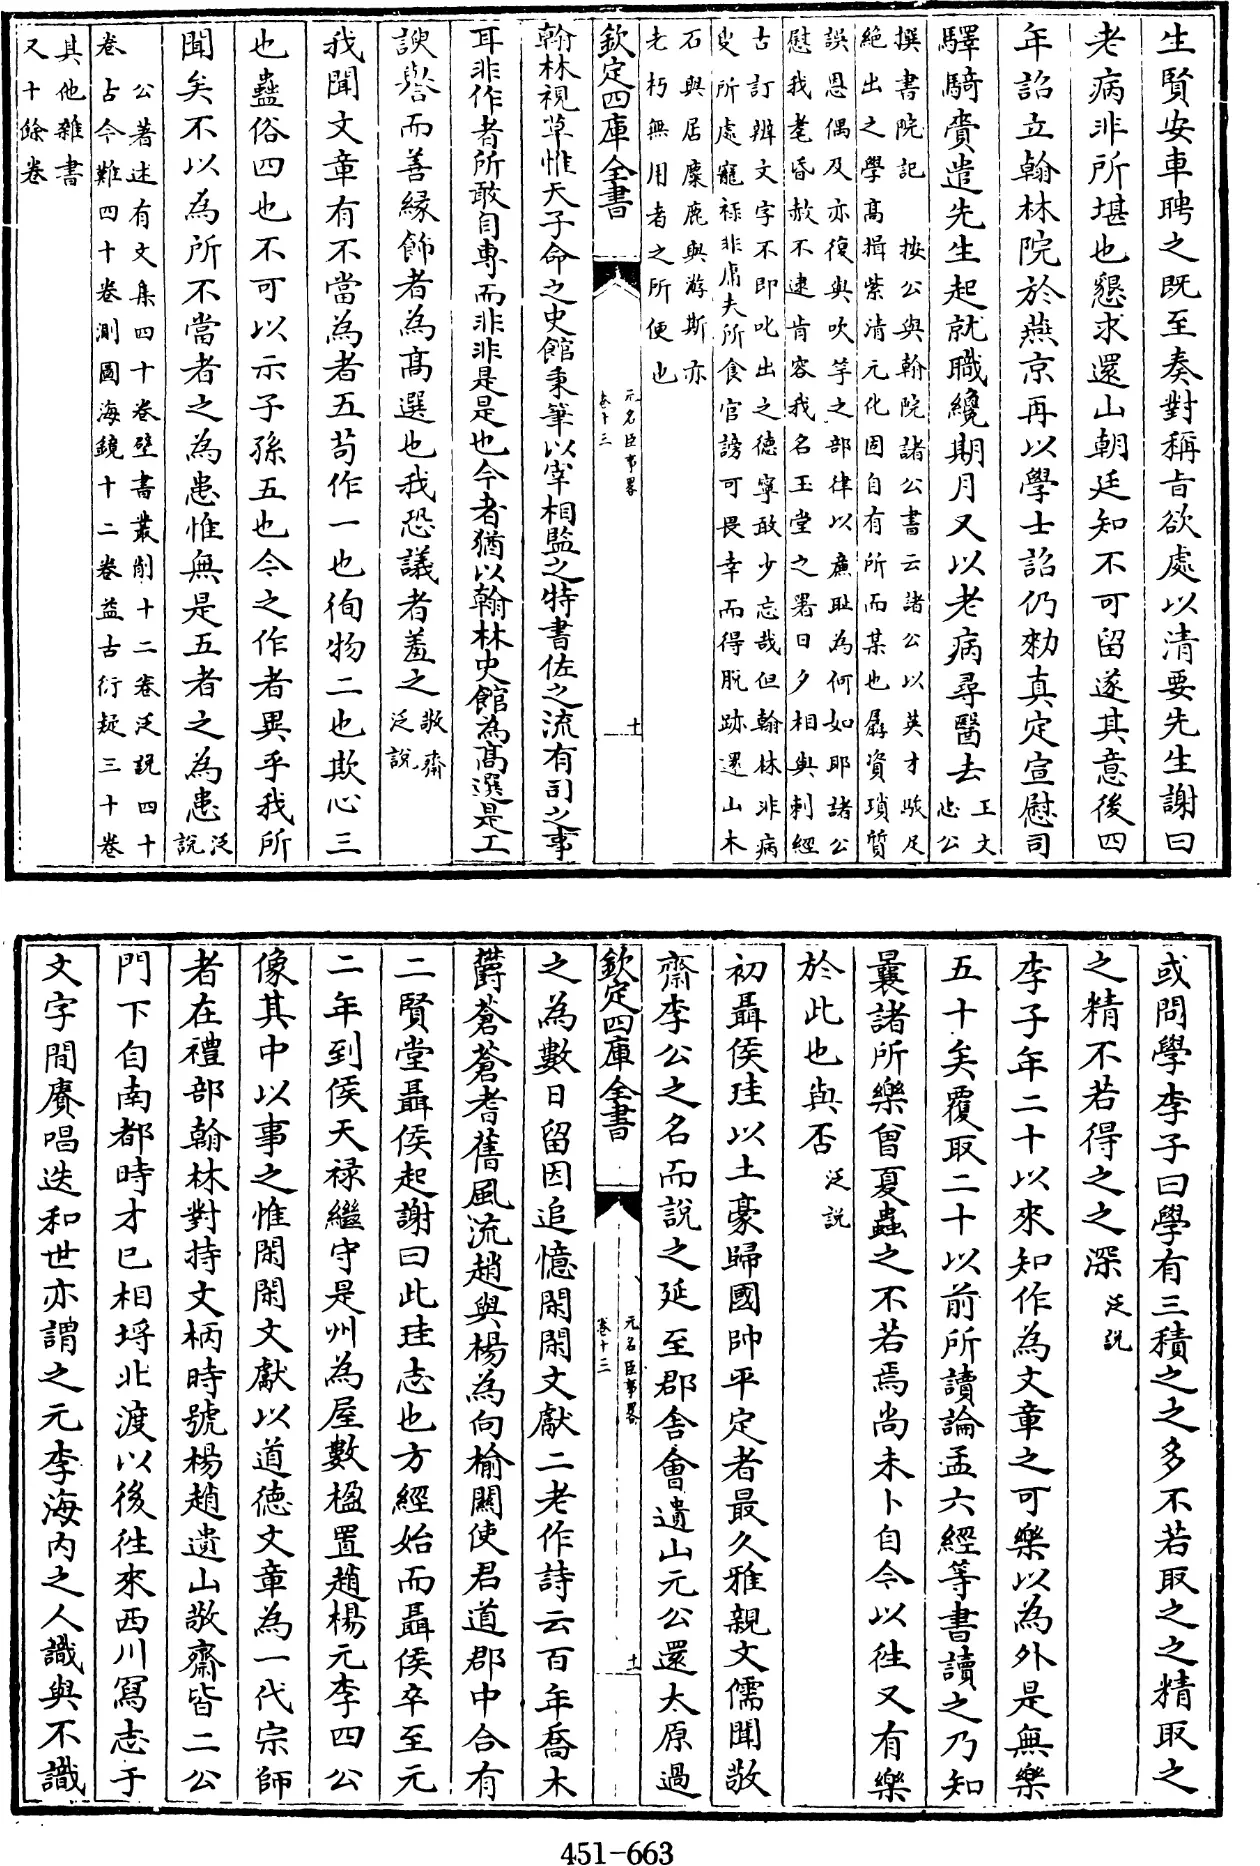 生賢安車聘之既至奏對稱旨欲處以清要先生謝曰
老病非所堪也懇求還山朝廷知不可留遂其意後四
年詔立翰林院於燕京再以學士詔仍勑真定宣慰司
驛騎賫遣先生起就職纔期月又以老病尋醫去王文忠公
撰書院記　按公與翰院諸公書云諸公以英才駿足
絶出之學高揖紫清元化固自有所而某也孱資瑣質
誤恩偶及亦復與吹竽之部律以廉耻為何如耶諸公
慰我耄昏赦不逮肯容我名玉堂之署日夕相與刺經
古訂辨文字不即叱出之德寧敢少忘哉但翰林非病
叟所處寵禄非庸夫所食官謗可畏幸而得脱跡還山木
石與居麋鹿與游斯亦
老朽無用者之所便也
欽定四庫全書
元名臣事畧
卷十三
十
翰林視草惟天子命之史館秉筆以宰相監之特書佐之流有司之事
耳非作者所敢自專而非非是是也今者猶以翰林史館為高選是工
諛譽而善緣飾者為高選也我恐議者羞之敬齋泛説
我聞文章有不當為者五苟作一也徇物二也欺心三
也蠱俗四也不可以示子孫五也今之作者異乎我所
聞矣不以為所不當者之為患惟無是五者之為患泛説
公著述有文集四十卷壁書叢削十二卷泛説四十
卷古今難四十卷測圓海鏡十二卷益古衍疑三十卷
其他雜書
又十餘卷
或問學李子曰學有三積之之多不若取之之精取之
之精不若得之之深泛説
李子年二十以來知作為文章之可樂以為外是無樂
五十矣覆取二十以前所讀論孟六經等書讀之乃知
曩諸所樂曾夏蟲之不若焉尚未卜自今以往又有樂
於此也與否泛説
初聶侯珪以土豪歸國帥平定者最久雅親文儒聞敬
齋李公之名而説之延至郡舎會遺山元公還太原過
欽定四庫全書
元名臣事畧
卷十三
十一
之為數日留因追憶閑閑文獻二老作詩云百年喬木
鬱蒼蒼耆舊風流趙與楊為向榆關使君道郡中合有
二賢堂聶侯起謝曰此珪志也方經始而聶侯卒至元
二年到侯天禄繼守是州為屋數楹置趙楊元李四公
像其中以事之惟閑閑文獻以道德文章為一代宗師
者在禮部翰林對持文柄時號楊趙遺山敬齋皆二公
門下自南都時才已相埒北渡以後徃來西川寫志于
文字間賡唱迭和世亦謂之元李海内之人識與不識
451-663